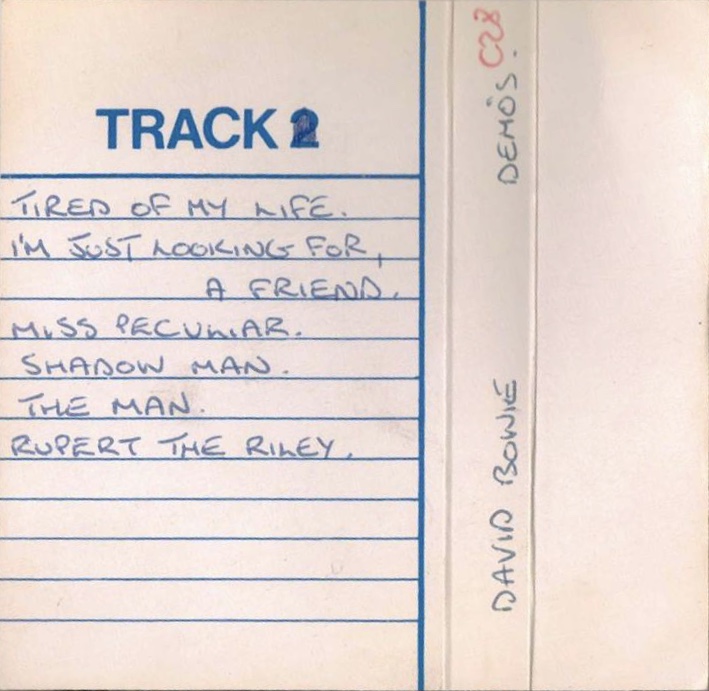 TRACK 2
TIRED OF MY LIFE.
I'M JUST LOOKING FOR,
A FRIEND.
MISS PECULIAR.
SHADOW MAN.
THE MAN.
RUPERT THE RILEY.
DAVID BOWIE DEMO'S. C28